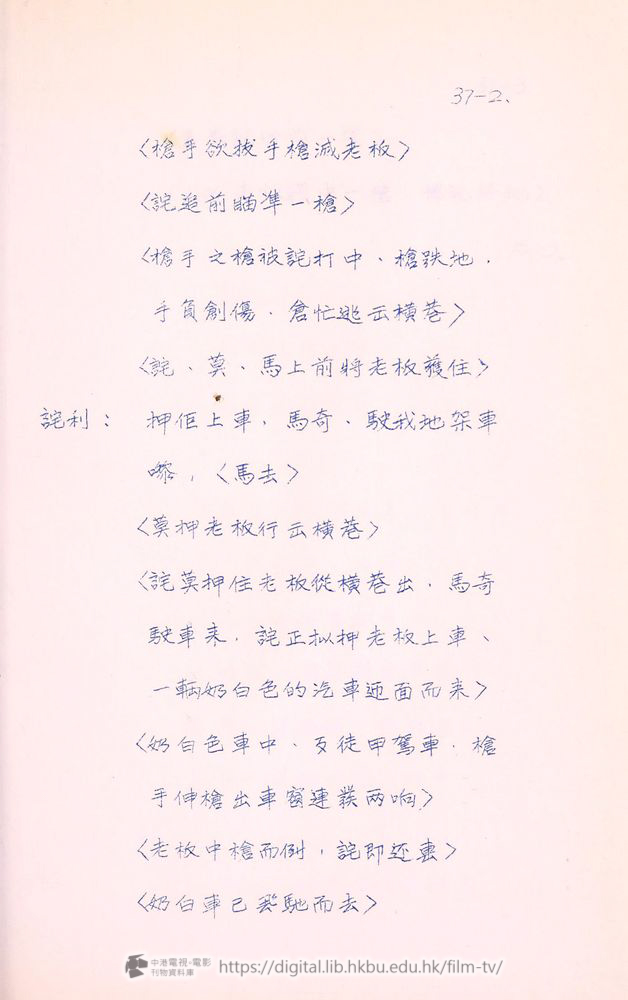 37-2、
〈槍手欲拔手槍滅老板〉
〈詫追前瞄準一槍〉
〈槍手之槍被詫打中、槍跌地．
手負創傷．倉忙逃云橫巷〉
〈詫、莫、馬上前將老板護住〉
詫利： 押佢上車，馬奇、駛我地架車
嚟，〈馬去〉
〈莫押老板行云橫巷〉
〈詫莫押住老板從橫巷出．馬奇
駛車來．詫正拟押老板上車、
一輛奶白色的汽車迎面而来〉
〈奶白色車中、歹徒甲駕車．槍
手伸槍出車窗連發两响〉
〈老板中槍而倒，詫即还擊〉
〈奶白車已飛馳而去〉
中港電視・電影
刊物資料庫
https://digital.lib.hkbu.edu.hk/film-tv/